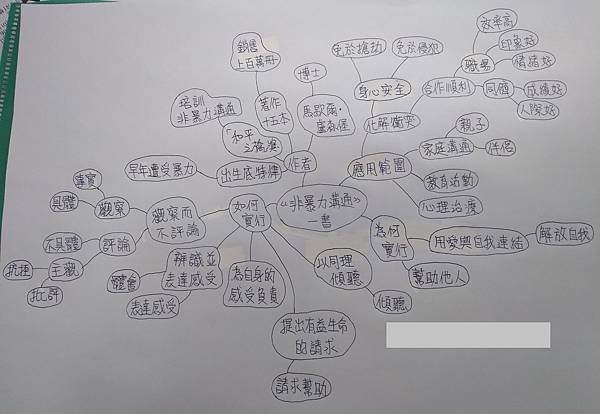 《非暴力溝通》
一書
作者
馬歇爾·
盧森堡
博士
著作
十五本
銷售
上百萬冊
「和平
之橋」
培訓
非暴力溝通
出生底特律
早年遭受暴力
應用範圍
化解衝突
身心安全
免於搶劫
免於侵犯
合作順利
職場
效率高
印象好
情緒好
同儕
成績好
人際好
家庭溝通
親子
伴侶
教育活動
心理治療
為何
實行
用愛與自我連結
解放自我
幫助他人
如何
實行
觀察而
不評論
觀察
真實
具體
評論
不具體
主觀
批評
辨識並
表達感受
體會
表達感受
為自身的
感受負責
提出有益生命
的請求
請求幫助
以同理
傾聽
傾聽